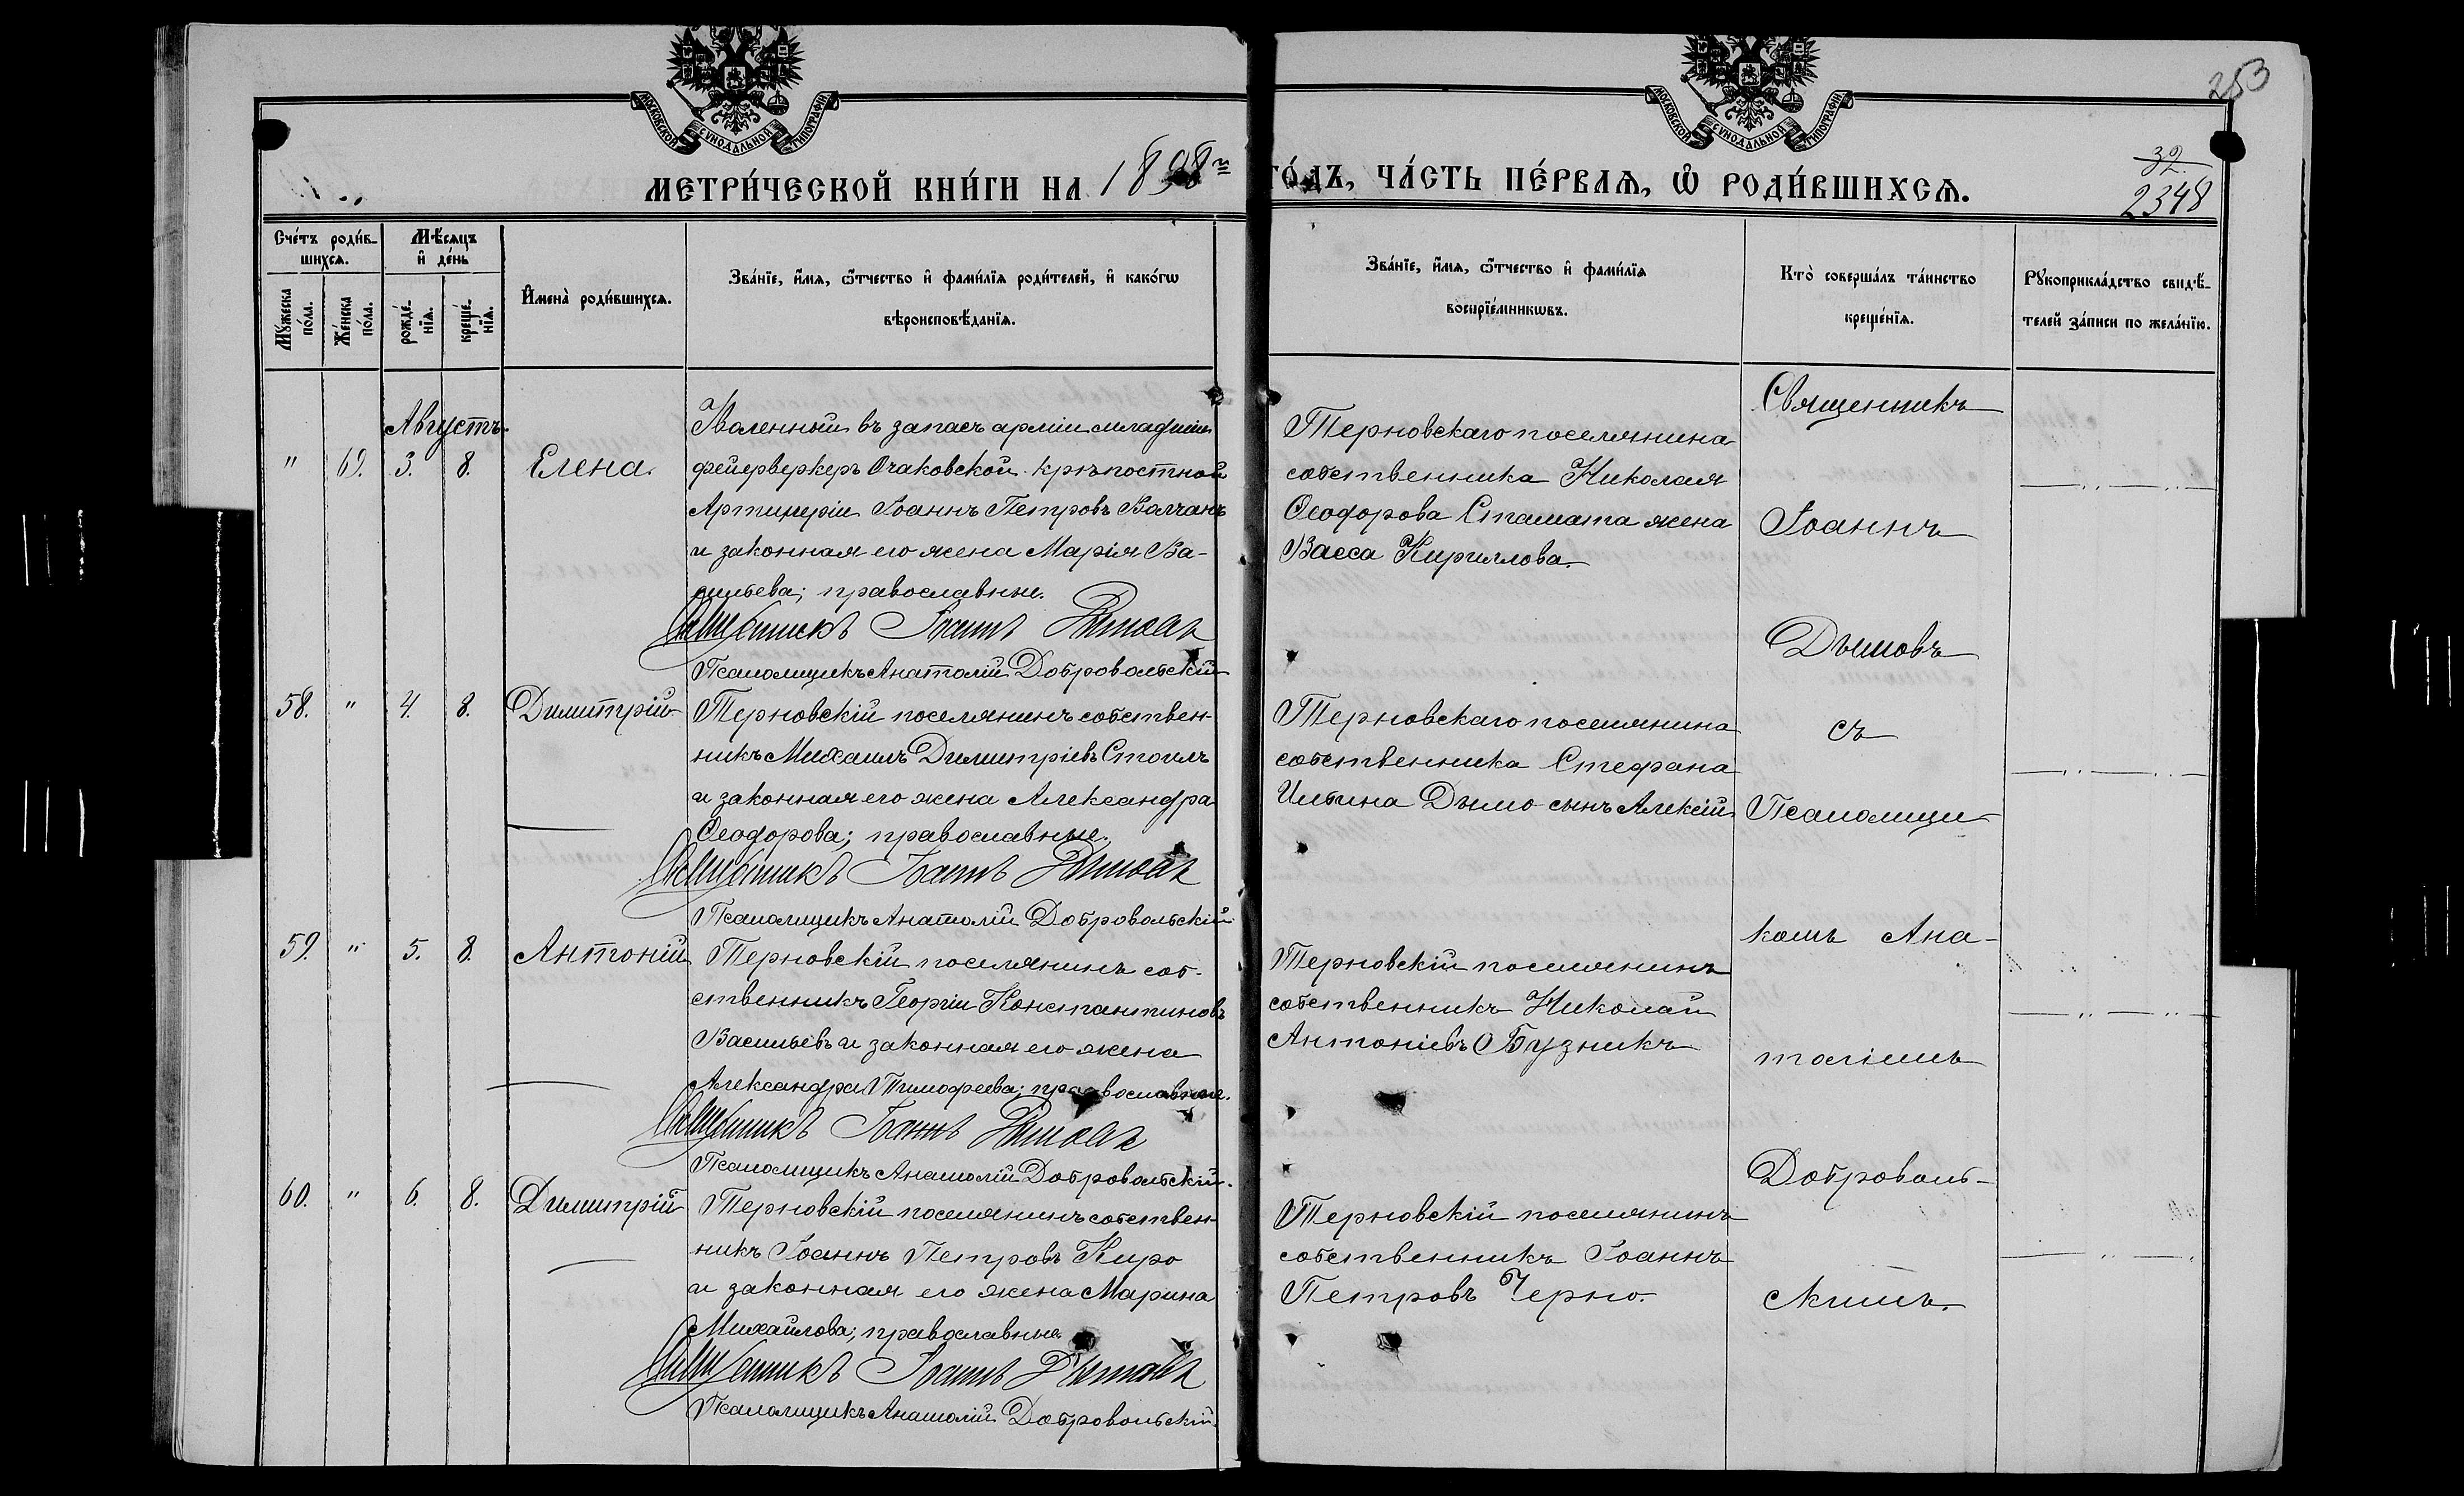 МОСКОВСКОЙ СѴНОДАЛЬНОЙ ТИПОГРАФІИ
МОСКОВСКОЙ СѴНОДАЛЬНОЙ ТИПОГРАФІИ
253
МЕТРИ́ЧЕСКОЙ КНИ́ГИ НА 1898й
ГО́ДЪ, ЧА́СТЬ ПЕ́РВАЯ, Ѽ РОДИ́ВШИХСЯ.
32.
2348
Сче́тъ роди́в-
шихся.
Мѣ́сяцъ
и҆ де́нь
Мꙋ́жеска по́ла.
Же́нска по́ла.
рожде́-нїя.
креще́-нїя.
И҆мена̀ роди́вшихся.
Зва́нїе, и҆́мя, ѻ҆́тчество и҆ фами́лїя роди́телей, и҆ како́гѡ
вѣроисповѣ́данїя.
Зва́нїе, и҆́мя, ѻ҆́тчество и҆ фами́лїя
воспрїе́мникѡвъ.
Кто̀ соверша́лъ та́инство
креще́нїя.
Рꙋкоприкла́дство свидѣ́-
телей за́писи по жела́нїю.
Августъ.
" 69. 3. 8. Елена.
Уволенный въ запасъ арміи младшій
фейерверкеръ Очаковской крѣпостной
Артилеріи Іоаннъ Петровъ Валчанъ
и законная его жена Марія Ва-
сильева; православные.
Священникъ Іоаннъ Дымовъ
Псаломщикъ Анатолій Добровольскій
Терновскаго поселянина
собственника Николая
Ѳеодорова Стамата жена
Васса Кириллова.
58. " 4. 8. Димитрій
Терновскій поселянинъ собствен-
никъ Михаилъ Димитріевъ Стоилъ
и законная его жена Александра
Ѳеодорова; православные.
Священникъ Іоаннъ Дымовъ
Псаломщикъ Анатолій Добровольскій
Терновскаго поселянина
собственника Стефана
Ильина Дымо сынъ Алексій
59. " 5. 8. Антоній
Терновскій поселянинъ соб-
ственникъ Георгій Константиновъ
Васильевъ и законная его жена
Александра Тимофеева; православные.
Священникъ Іоаннъ Дымовъ
Псаломщикъ Анатолій Добровольскій.
Терновскій поселянинъ
собственникъ Николай
Антоніевъ Бузникъ
60. " 6. 8. Димитрій
Терновскій поселянинъ собствен-
никъ Іоаннъ Петровъ Киро
и законная его жена Марина
Михайлова; православные.
Священникъ Іоаннъ Дымовъ
Псаломщикъ Анатолій Добровольскій.
Терновскій поселянинъ
собственникъ Іоаннъ
Петровъ Черно.
Священникъ
Іоаннъ
Дымовъ
съ
Псаломщи-
комъ Ана-
толіемъ
Доброволь-
скимъ.